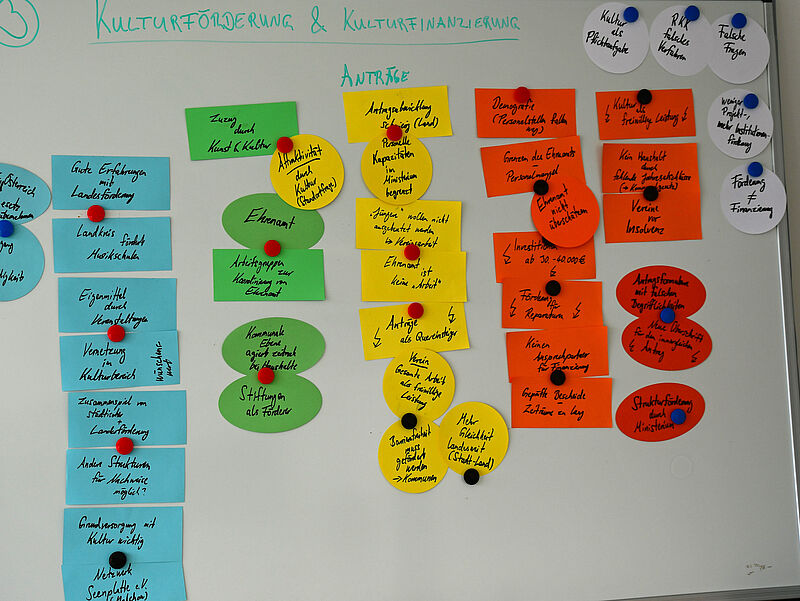 3
KULTURFÖRDERUNG & KULTURFINANZIERUNG
ANTRÄGE
Kultur
als
Pflichtaufgabe
RKK
falsches
Verfahren
Falsche
Fragen
weniger
Projekt-,
mehr Institutionen-
förderung
Förderung
≠
Finanzierung
Gute Erfahrungen
mit
Landesförderung
Landkreis
fördert
Musikschulen
Eigenmittel
durch
Veranstaltungen
Vernetzung
im
Kulturbereich
wünschens-
wert
Zusammenspiel von
städtischer
Landesförderung
Andere Strukturen
für Nachweise
möglich?
Grundversorgung mit
Kultur wichtig
Netzwerk
Seenplatte e.V.
Zuzug
durch
Kunst & Kultur
Attraktivität
durch
Kultur
(Standortfrage)
Ehrenamt
Arbeitsgruppen
zur
Koordinierung von
Ehrenamt
Kommunale
Ebene
agiert zentral
bei Haushalte
Stiftungen
als Förderer
Antragsabwicklung
Schwierig (Land)
Personelle
Kapazitäten
im
Ministerium
begrenzt
"Jüngere" wollen nicht
ausgebeutet werden
→ Vereinsarbeit
Ehrenamt
ist
keine "Arbeit"
Anträge
als Quereinsteiger
Verein
Gesamte Arbeit
als freiwillige
Leistung
Barrierefreiheit
muss
gefördert
werden
→ Kommunen
Mehr
Gleichheit
Landesweit
(Stadt-Land)
Demografie
(Personalstellen fallen
weg)
Grenzen des Ehrenamts
→ Personalmangel
Ehrenamt
nicht
überschätzen
Investitionen
ab 30,-40.000 €
Förderung
für
Reparaturen
Keinen
Ansprechpartner
für Finanzierung
Geprüfte Bescheide
Zeiträume zu lang
Kultur als
freiwillige Leistung
Kein Haushalt
durch
fehlende Jahresabschlüsse
Vereine
vor
Insolvenz
Antragsformulare
mit falschen
Begrifflichkeiten
für den
Antrag
Strukturförderung
durch
Ministerium